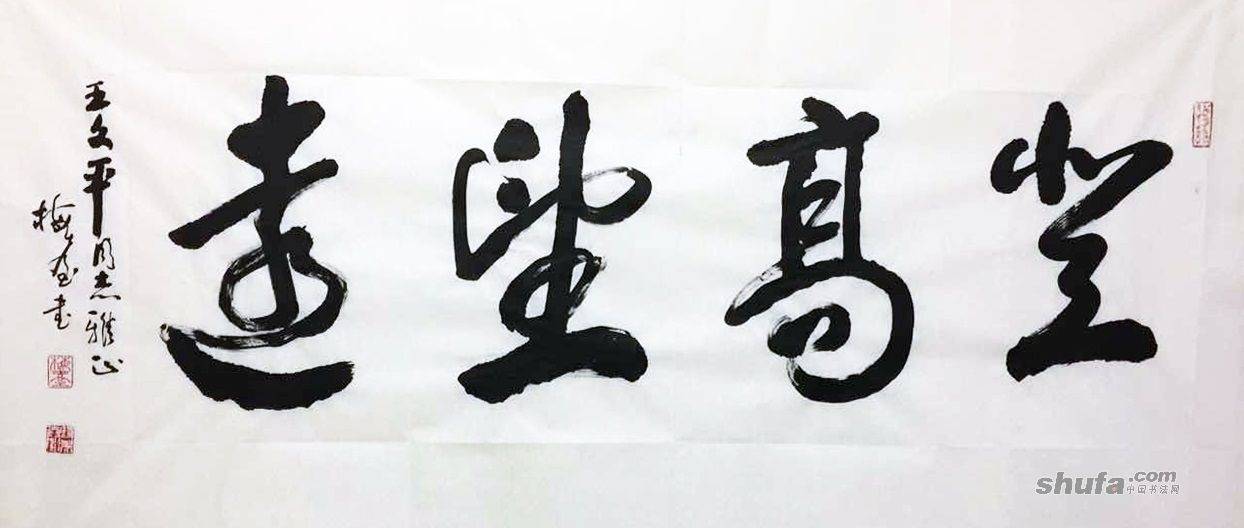 登高望遠
王文平同志雅正
梅奎书
shufa.com
中国书法网